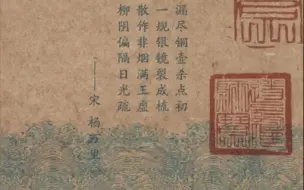 漏尽铜壶杀点初
一规银镜裂成梳
散作非烟满玉虚
柳阴偏隔日光疏
——宋 杨万里